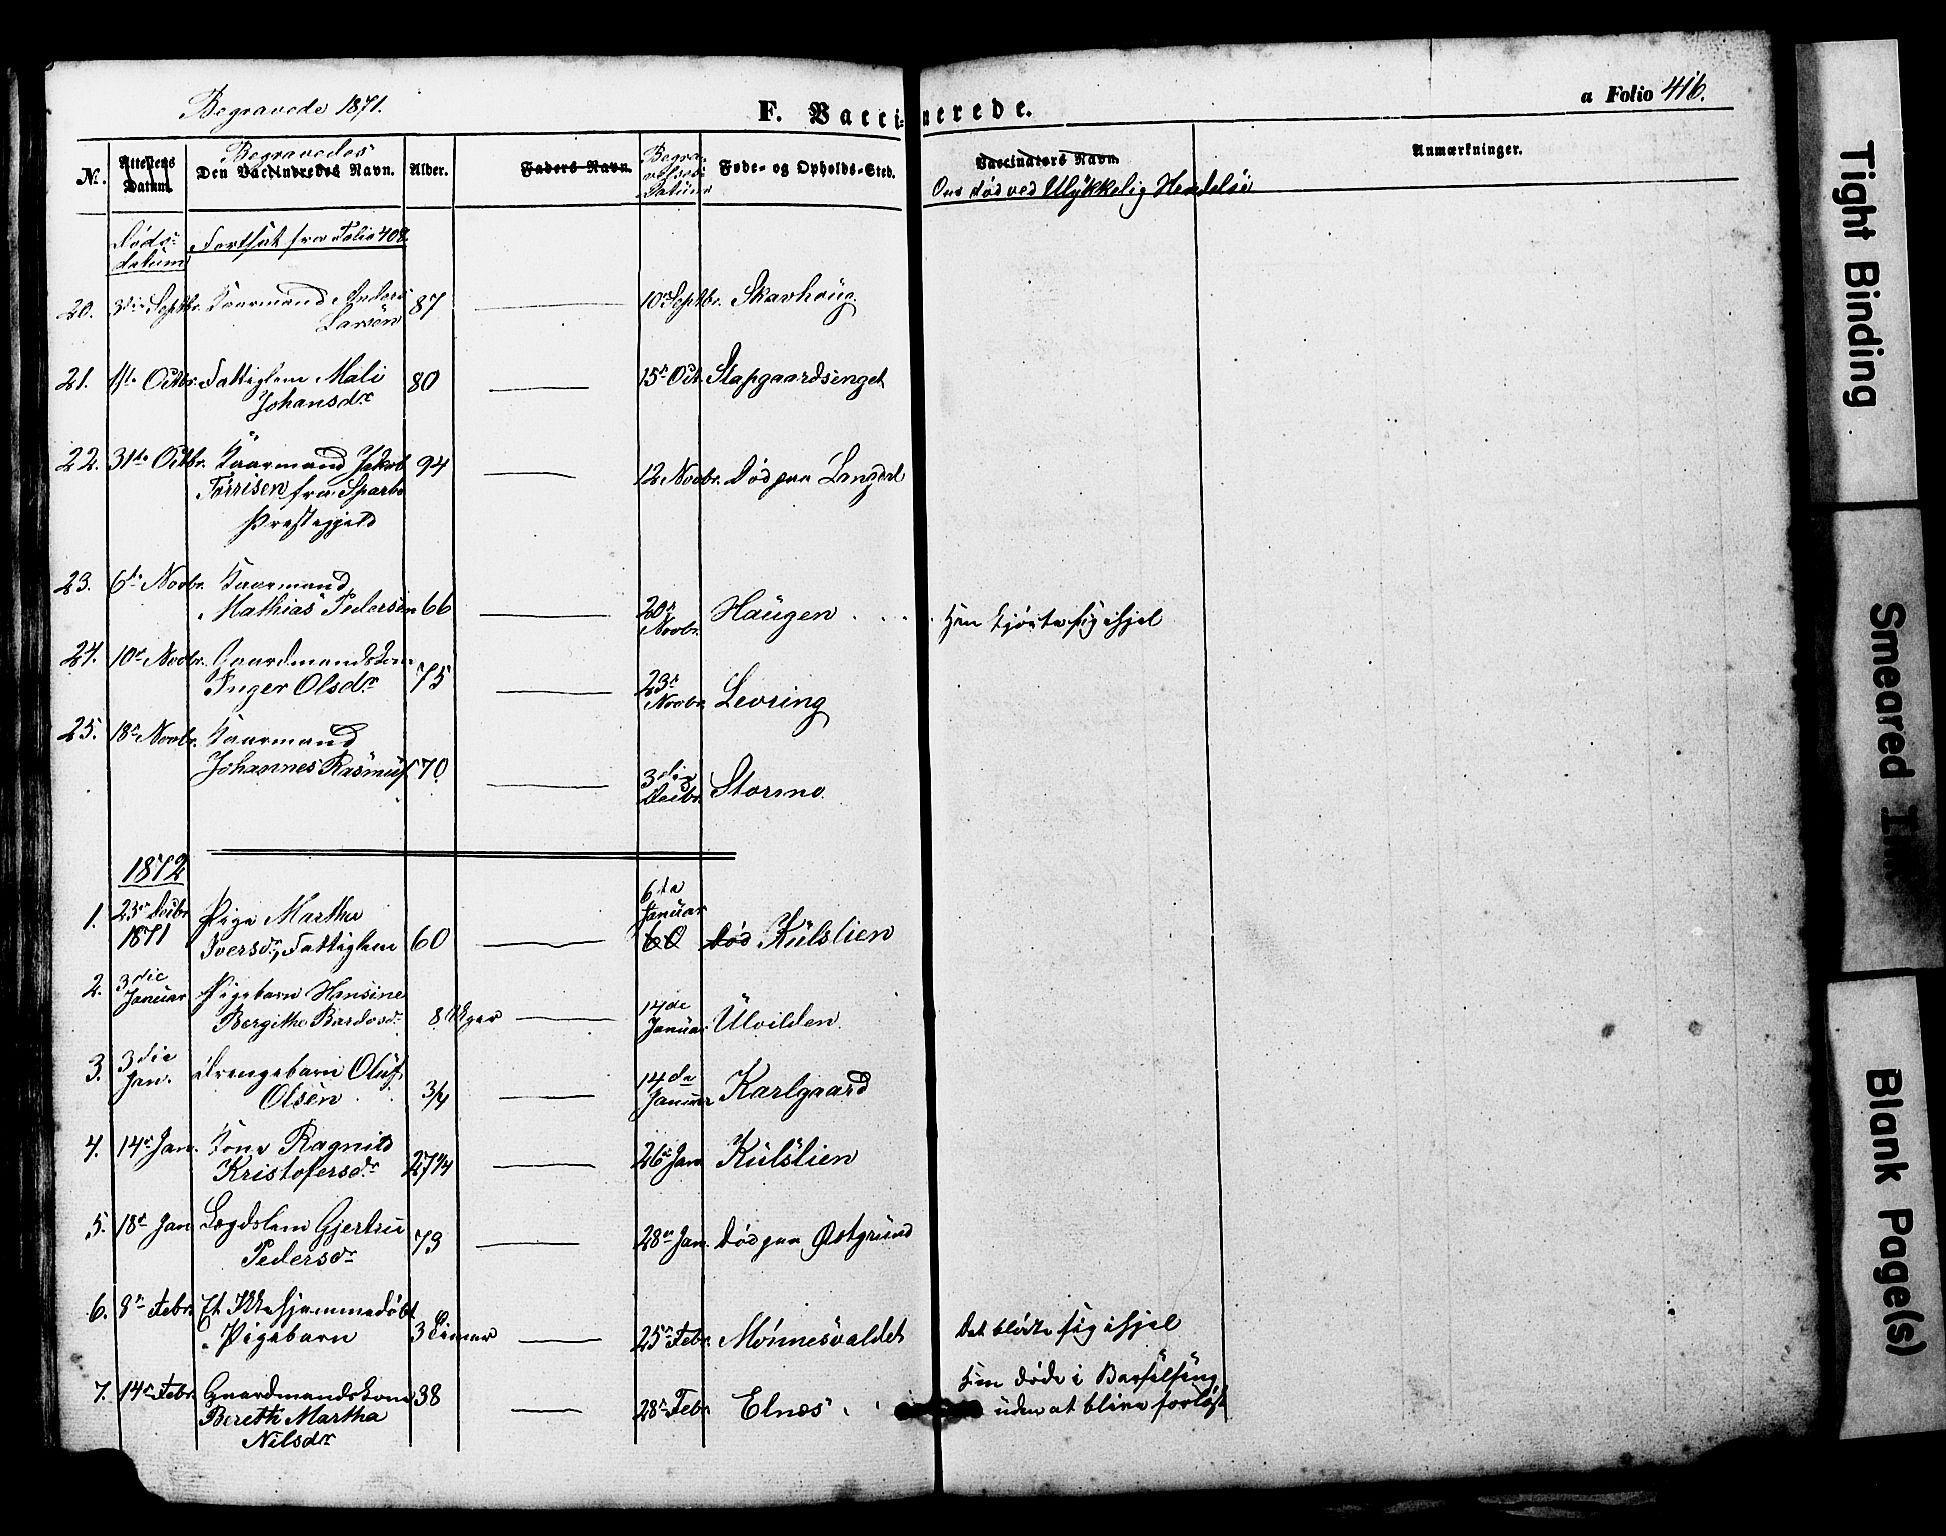 Begravede 1871.
F. Vaccinerede.
a Folio 416.
No. Attestens Datum. Begravedes Den Vaccineredes Navn. Alder. Faders Navn. Begravelses Datum Føde- og Opholds-Sted. Vaccinators Navn. Anmærkninger.
Om død ved Ulykkelig Hendelse
Døds-datum Fortsat fra Folio 408.
20. 3die Septbr. Kaarmand Anders 87 10de Septbr. Skavhaug.
Larsen
21. 1ste Octbr. Fattiglem Mali 80 15de Oct. Stapgaardsenget
Johansdr
22. 31te Octbr. Kaarmand Jakob 94 12 Novbr. Død paa
Tørrisen fra Sparbo
Præstegjeld
23. 6te Novbr. Kaarmand
Mathias Pedersen 66 20de Novbr. Haugen . . . . . Han kjørte sig ihjel
24. 10de Novbr. Gaardmandskone
Inger Olsdr 75 23de Novbr. Levring
25. 18de Novbr. Kaarmand
Johannes Rasmus 70 3die Decbr. Stormo.
1872
1. 23de Decbr. Pige Martha 6te Januar
1871 Iversdr, Fattiglem 60 60 Død Kulslien
2. 3die Januar Pigebarn Hansine
Bergithe Bardosdr. 8 Uger 14de Januar Ulvilden.
3. 3die Jan. Drengebarn Oluf
Olsen. 3/4 14de Januar Karlgaard
4. 14de Jan. Kone Ragnild
Kristofersdr 27 1/4 26de Jan Kulslien
5. 18de Jan Lægdslem Gjertru
Pedersdr 73 28de Jan. Død paa Østgrund
6. 8de Febr. Et Ikkehjemmedøbt
Pigebarn 3 Timer 25de Febr. Mønnesvaldet Det blødte sig ihjel
7. 14de Febr. Gaardmandskone 38 28de Febr. Elnæs . . Hun døde i Barselseng
Bereth Martha uden at blive forløst
Nilsdr
Tight Binding
Smeared Ink
Blank Page(s)